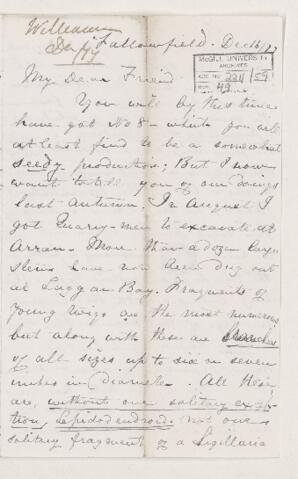 William
Fallowfield. Dec 16/77
McGILL UNIVERSITY
ARCHIVES
ACC. NO. 2211 / 59
REF. 49
My Dear Friend
You will by this time
have got No 8 - which you will
at least find to be a somewhat
seedy production; But I now
want to tell you of our doings
last Autumn. In August I
got Quarry-men to excavate at
Arran. More than a dozen large
stems have now been dug out
at Laggan Bay. Fragments of
young twigs are the most numerous
but along with these are branches
of all sizes up to six or seven
inches in diameter. All these
are, without one solitary excep-
tion, Lepidodendroid. Not one
solitary fragment of a Sigillaria